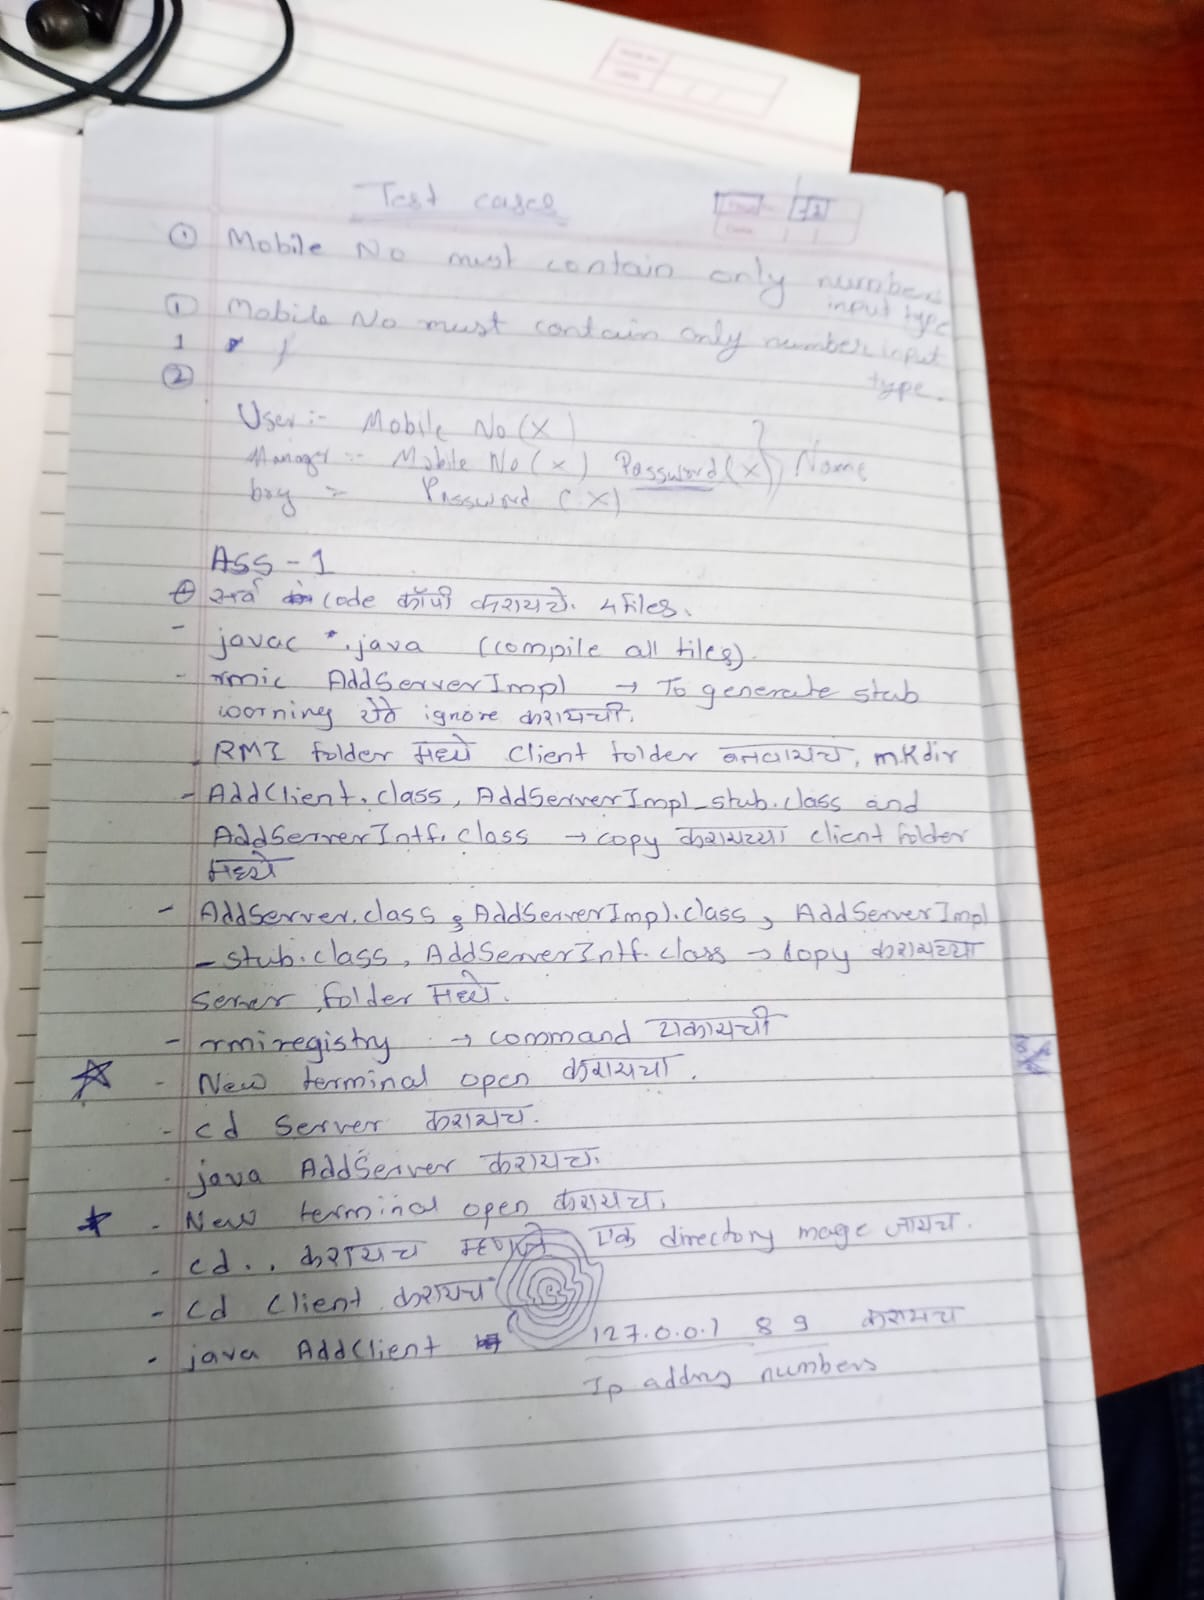 Test cases
① Mobile No must contain only numbers
input type
① Mobile No must contain only number input
type.
1
②
User :- Mobile No (x)
Manager :- Mobile No (x) Password (x) } Name
boy = Password (x)
Ass - 1
सर्व code कॉपी करायचे. 4 files.
- javac *.java (compile all files).
- rmic AddServerImpl → To generate stub
worning येते ignore करायची.
RMI folder मध्ये client folder बनवायच, mkdir
- AddClient.class, AddServerImpl_stub.class and
AddServerIntf.class → copy करायच्या client folder
मध्ये
- AddServer.class, AddServerImpl.class, AddServerImpl
_stub.class, AddServerIntf.class → copy करायच्या
Server folder मध्ये.
- rmiregistry → command टाकायची
☆ - New terminal open करायचा.
- cd Server करायच.
- java AddServer करायच.
★ - New terminal open करायच.
- cd .. करायच म्हणजे एक directory mage जायच.
- cd client करायच
- java AddClient 127.0.0.1 8 9 करायच
Ip addrs numbers